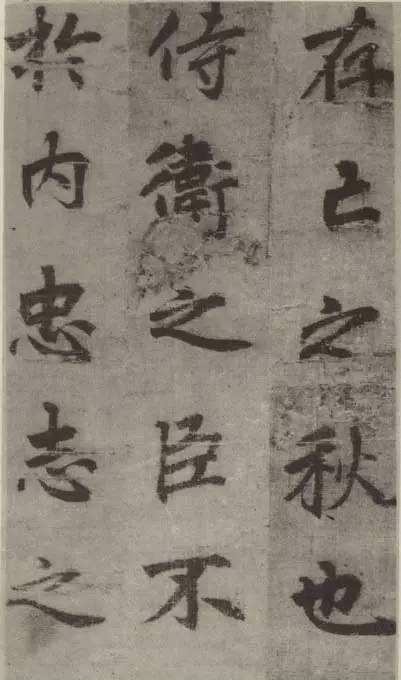 存亡之秋也
侍衛之臣不
於内忠志之